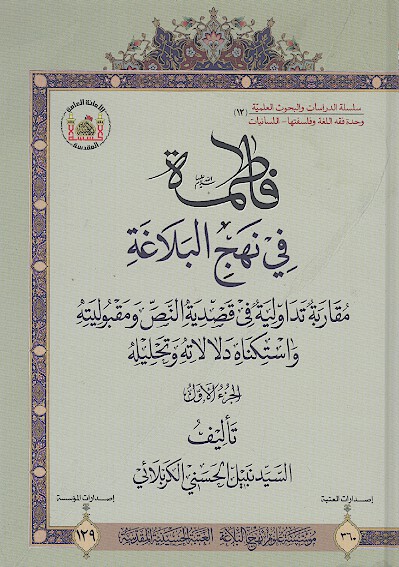 سلسلة الدراسات والبحوث العلمية (١٣)
وحدة فقه اللغة وفلسفتها - اللسانيات
الأمانة العامة
المقدسة
فاطمة
في نهج البلاغة
مقاربة تداولية في قصدية النص ومقبوليته
واستكناه دلالاته وتحليله
الجزء الأول
تأليف
السيد نبيل الحسني الكربلائي
إصدارات العتبة
إصدارات المؤسسة
٣٦٠
مؤسسة علوم نهج البلاغة
العتبة الحسينية المقدسة
١٢٩